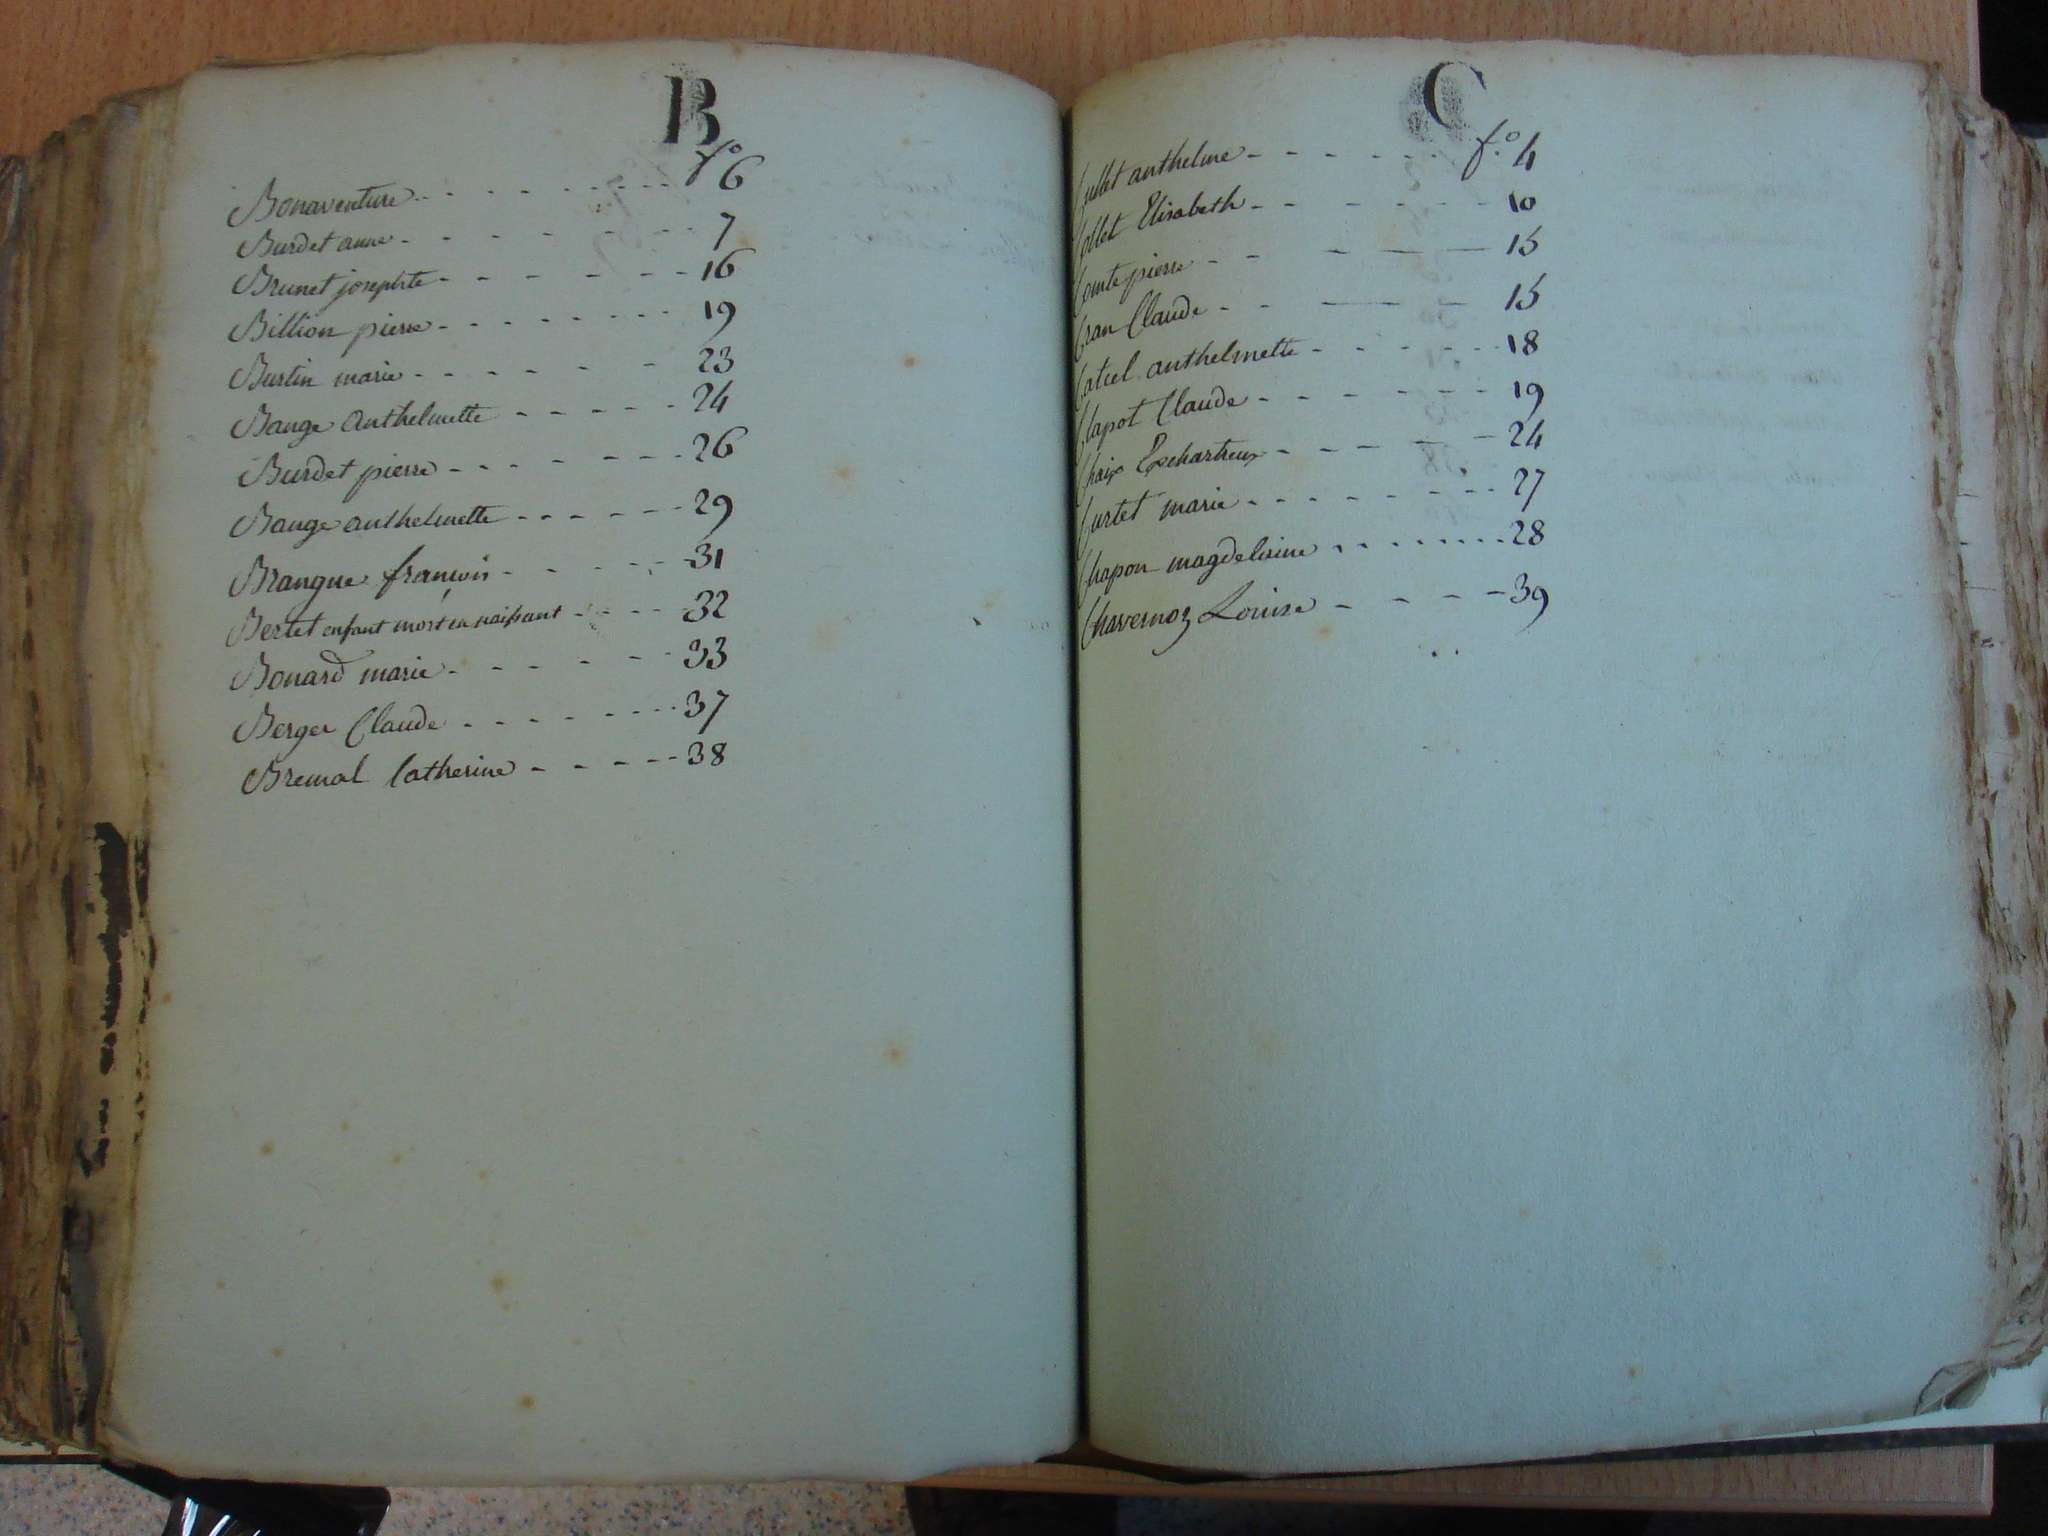 B
Bonaventure fo 6
Burdet anne 7
Brunet josephte 16
Billion pierre 19
Burtin marie 23
Bauge Anthelmette 24
Burdet pierre 26
Bauge anthelmette 29
Brangue francois 31
Bertet enfant mort en naissant 32
Bonard marie 33
Berger Claude 37
Bremal Catherine 38
C
Cullet anthelme f.o 4
Collet Elisabeth 10
Comte pierre 15
Cran Claude 15
Catiel anthelmette 18
Clapot Claude 19
Chaix Exchartreux 24
Curtet marie 27
Chapon magdeleine 28
Chavernoz Louise 39